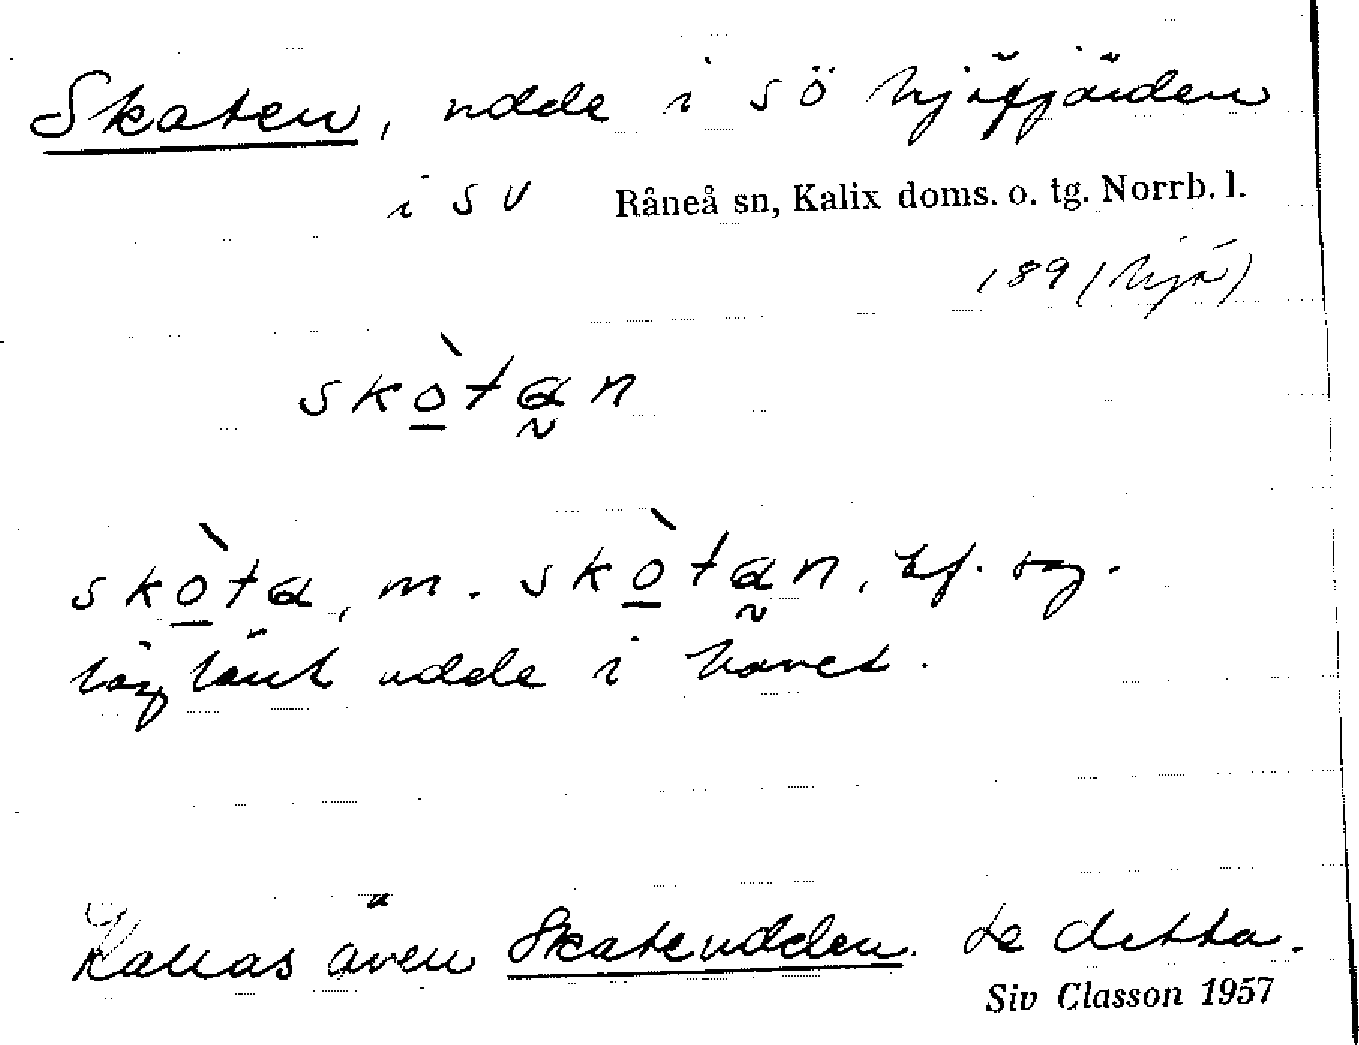 Skaten, udde i sö Hjåfjärden
i sv Råneå sn, Kalix doms. o. tg. Norrb. l.
189 (Hjå)
skò̱ta̰n
skò̱ta, m. skò̱ta̰n, bf. sg.
höglänt udde i havet.
Kallas även Skatudden. Se detta.
Siv Classon 1957